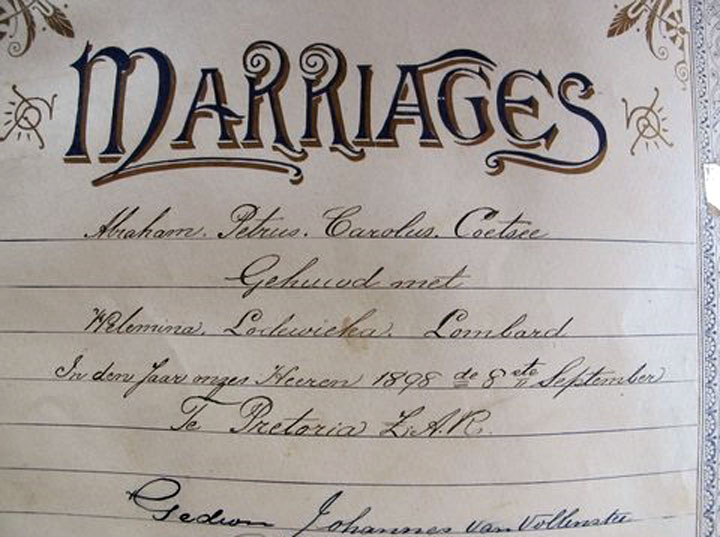 MARRIAGES
Abraham. Petrus. Carolus. Coetsee
Gehuwd met
Welemina. Lodewieka. Lombard
In den Jaar onzes Heeren 1898 de 8ste September
Te Pretoria Z.A.R.
Gedion Johannes van Vollenstee